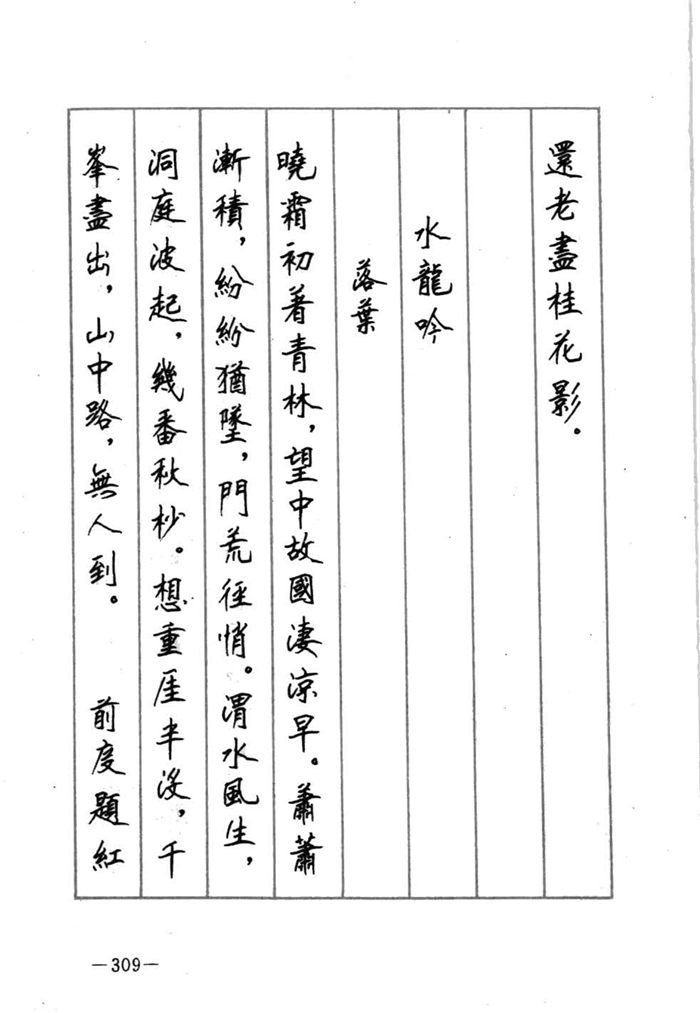 還老盡桂花影。
水龍吟
落葉
曉霜初着青林，望中故國淒涼早。蕭蕭
漸積，紛紛猶墜，門荒徑悄。渭水風生，
洞庭波起，幾番秋杪。想重厓半沒，千
峯盡出，山中路，無人到。　前度題紅
—309—